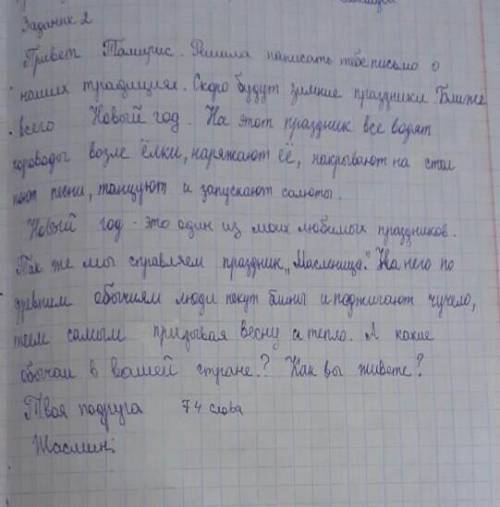 Задание 2
Привет Тамирис. Решила написать тебе письмо о
наших традициях. Скоро будут зимние праздники Ближе
всего Новый год. На этот праздник все водят
хороводы возле ёлки, наряжают её, накрывают на стол
поют песни, танцуют и запускают салюты.
Новый год - это один из моих любимых праздников.
Так же мы справляем праздник „Масленица." На него по
древним обычиям люди пекут блины и поджигают чучело,
тем самым призывая весну и тепло. А какие
обычаи в вашей стране? Как вы живёте?
Твоя подруга 74 слова
Жасмин.